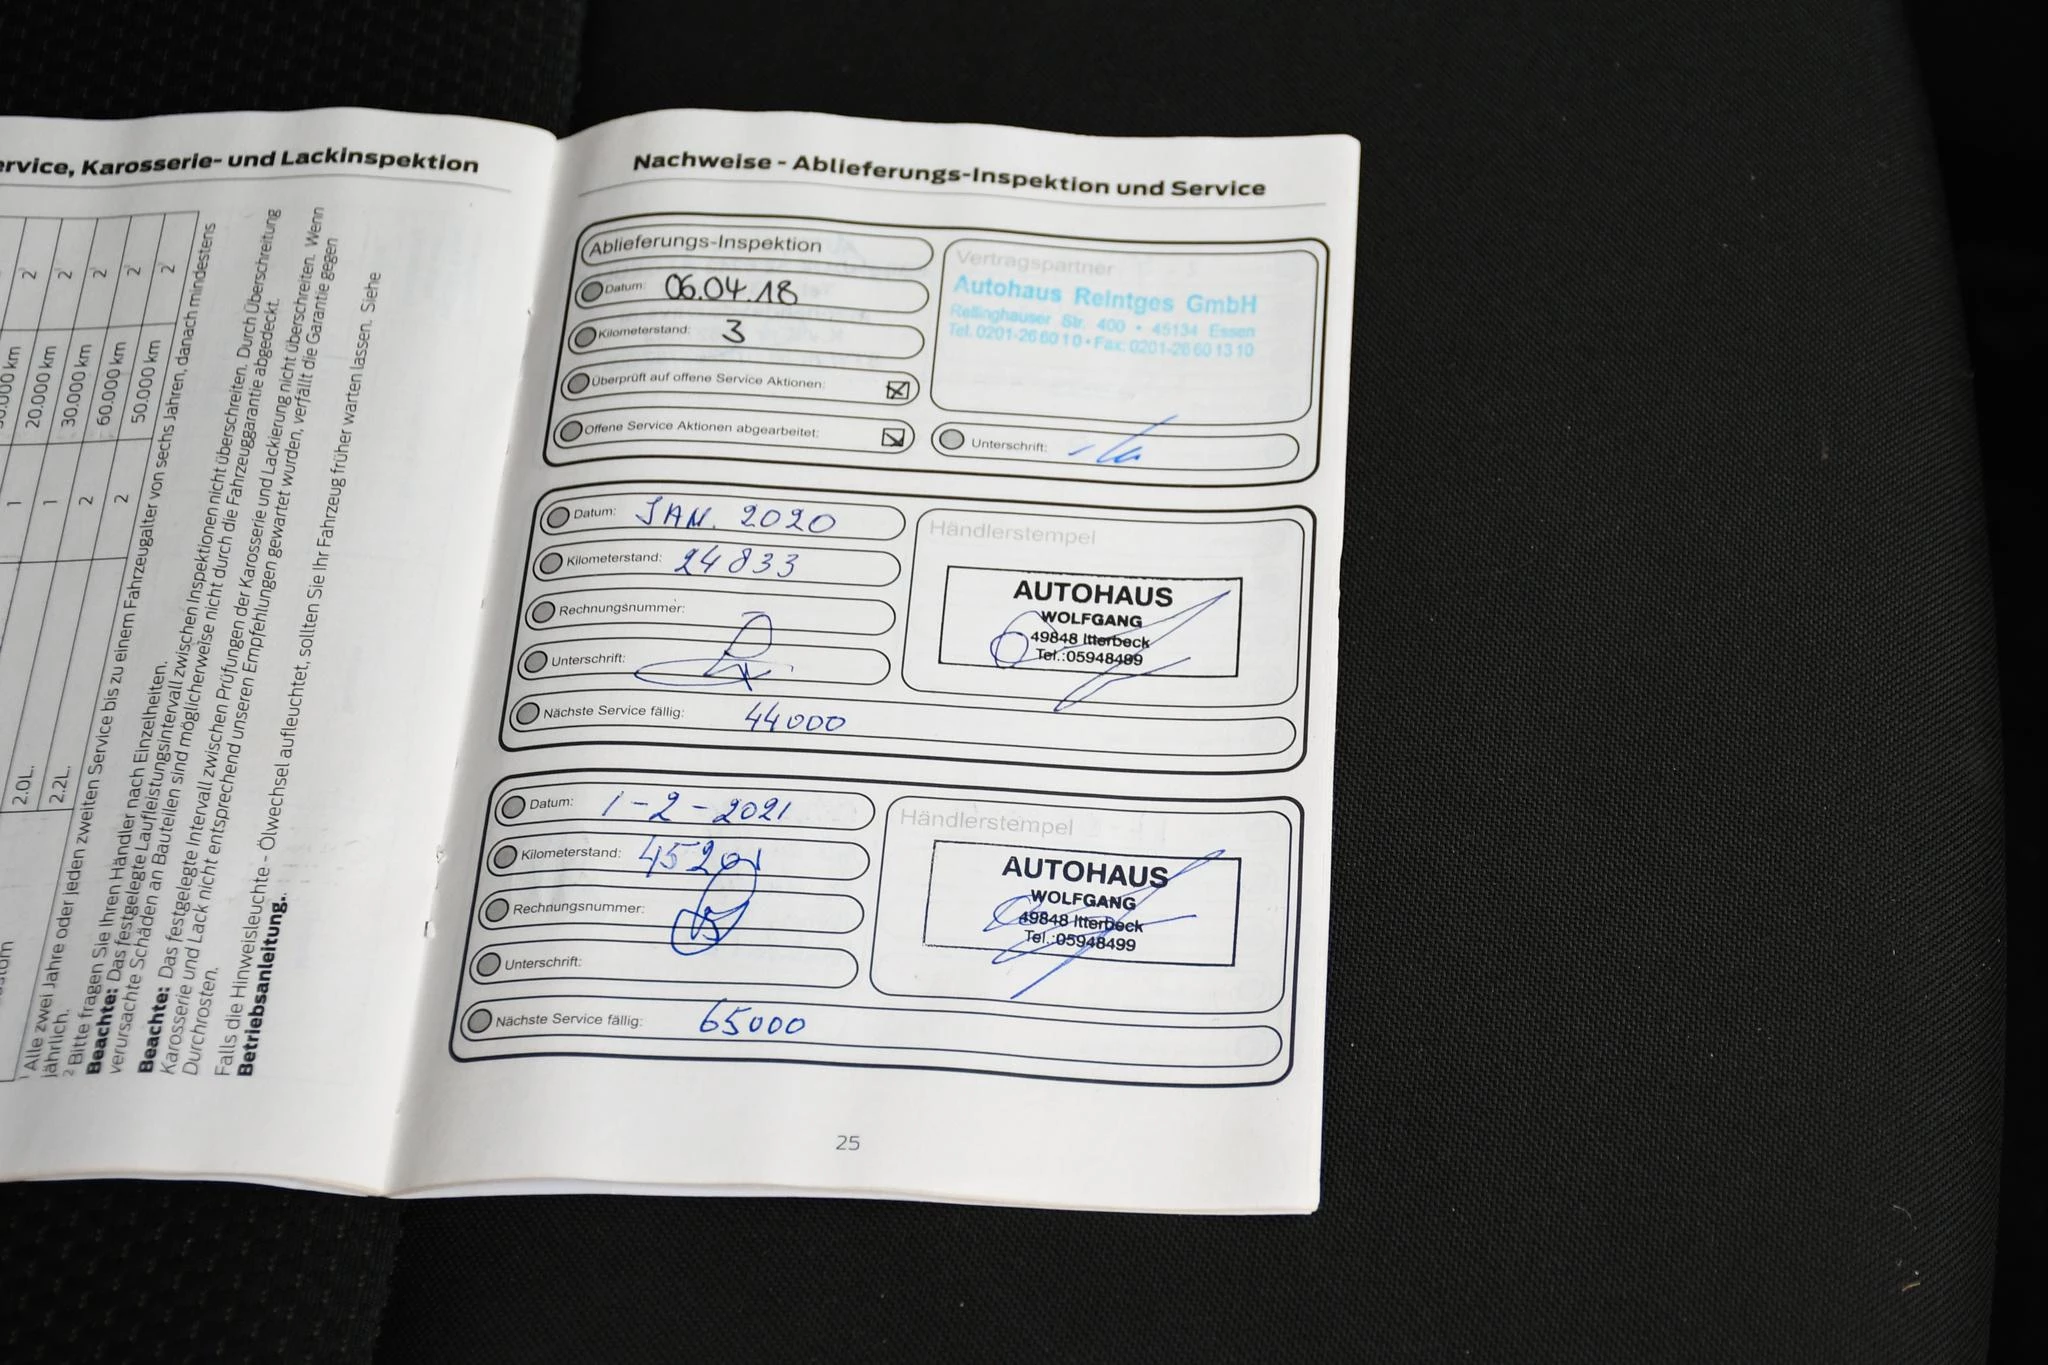 ervice, Karosserie- und Lackinspektion
2¹
20.000 km
1
2.0L.
2¹
30.000 km
1
2.2L.
2¹
60.000 km
2
2¹
50.000 km
2
2¹
¹ Alle zwei Jahre oder jeden zweiten Service bis zu einem Fahrzeugalter von sechs Jahren, danach mindestens
jährlich.
² Bitte fragen Sie Ihren Händler nach Einzelheiten.
Beachte: Das festgelegte Laufleistungsintervall zwischen Inspektionen nicht überschreiten. Durch Überschreitung
verursachte Schäden an Bauteilen sind möglicherweise nicht durch die Fahrzeuggarantie abgedeckt.
Beachte: Das festgelegte Intervall zwischen Prüfungen der Karosserie und Lackierung nicht überschreiten. Wenn
Karosserie und Lack nicht entsprechend unseren Empfehlungen gewartet wurden, verfällt die Garantie gegen
Durchrosten.
Falls die Hinweisleuchte - Ölwechsel aufleuchtet, sollten Sie Ihr Fahrzeug früher warten lassen. Siehe
Betriebsanleitung.
Nachweise - Ablieferungs-Inspektion und Service
Ablieferungs-Inspektion
Datum: 06.04.18
Kilometerstand: 3
Überprüft auf offene Service Aktionen:
Offene Service Aktionen abgearbeitet:
Vertragspartner
Autohaus Reintges GmbH
Rellinghauser Str. 400 • 45134 Essen
Tel. 0201-26 60 10 • Fax: 0201-26 60 13 10
Unterschrift:
Datum: JAN. 2020
Kilometerstand: 24833
Rechnungsnummer:
Unterschrift:
Nächste Service fällig: 44000
Händlerstempel
AUTOHAUS
WOLFGANG
49848 Itterbeck
Tel.:05948499
Datum: 1-2-2021
Kilometerstand:
Rechnungsnummer:
Unterschrift:
Nächste Service fällig: 65000
Händlerstempel
AUTOHAUS
WOLFGANG
49848 Itterbeck
Tel.:05948499
25